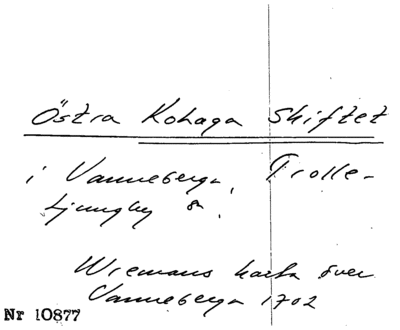 Östra Kohaga Skiftet
i Vanneberga, Trolle-
Ljungby sn.
Wiemans karta över
Vanneberga 1702
Nr 10877